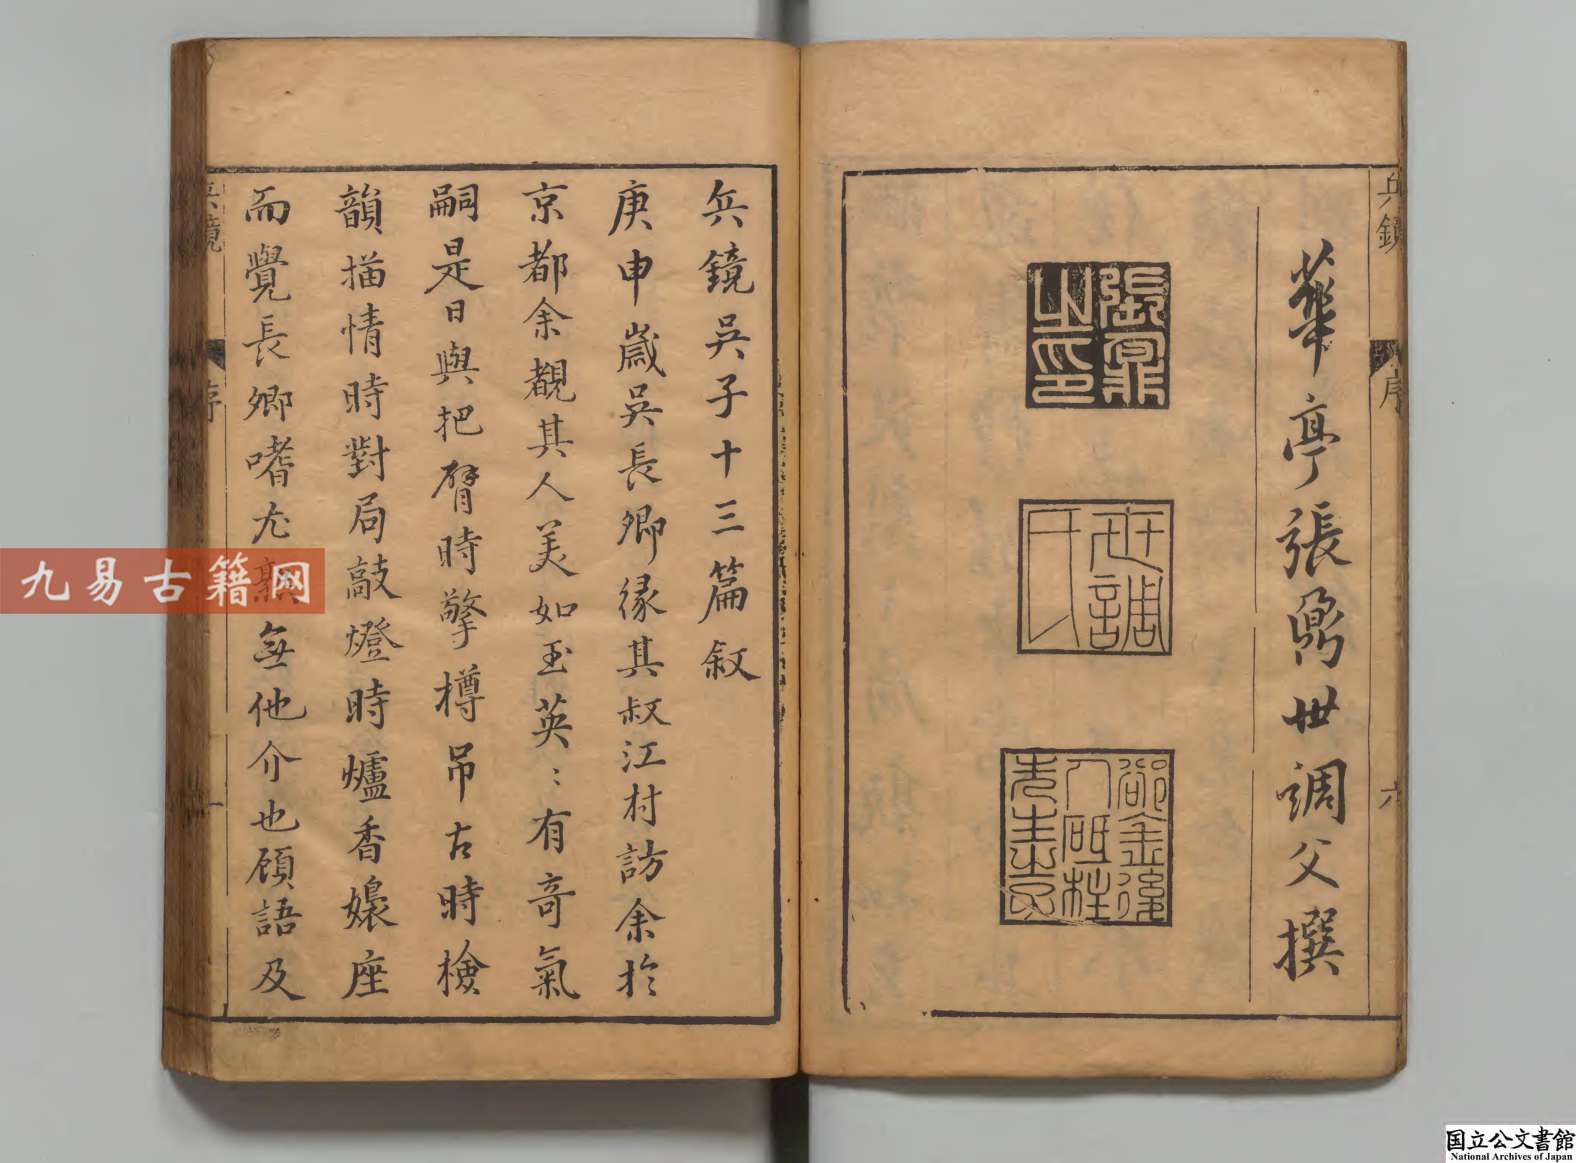 兵鏡
序
六
華亭張鼐世調父撰
張鼐之印
世調氏
兵鏡吳子十三篇叙
庚申嵗吳長卿緣其叔江村訪余於
京都余覩其人美如玉英〻有奇氣
嗣是日與把臂時擎樽吊古時檢
韻描情時對局敲燈時爐香嬝座
而覺長卿嗜尤無他介也頋語及
兵鏡
序
一
九易古籍网
国立公文書館
National Archives of Japan